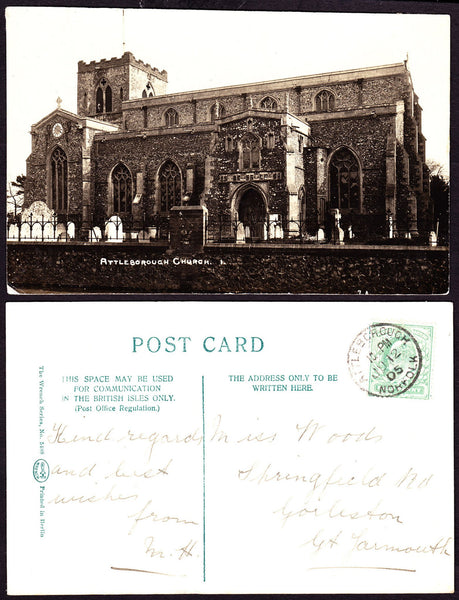 ATTLEBOROUGH CHURCH. 1.
POST CARD
THIS SPACE MAY BE USED
FOR COMMUNICATION
IN THE BRITISH ISLES ONLY.
(Post Office Regulation.)
THE ADDRESS ONLY TO BE
WRITTEN HERE.
ATTLEBOROUGH
PM
12
05
NORFOLK
The Wrench Series, No.
Printed in Berlin
Kind regards
and best
wishes
from
M.H.
Miss Woods
Springfield Rd
Gorleston
Gt Yarmouth